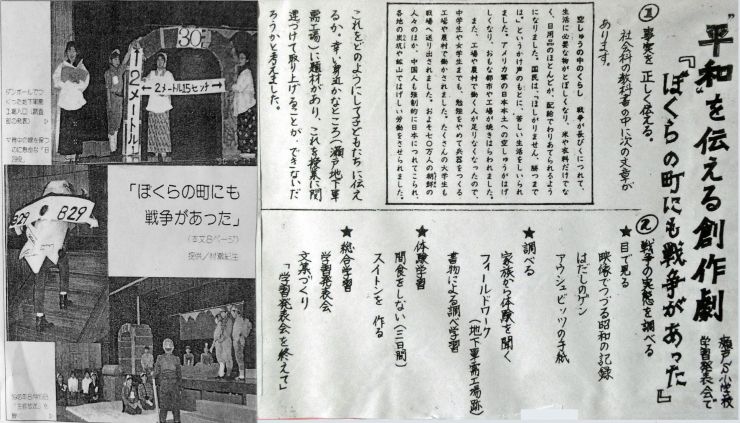 "平和"を伝える創作劇
『ぼくらの町にも戦争があった』
瀬戸S小学校
学習発表会で
① 事実を正しく伝える。
社会科の教科書の中に次の文章が
あります。
空しゅうの中のくらし 戦争が長びくにつれて、
生活に必要な物がとぼしくなり、米や衣料だけでな
く、日用品のほとんどが、配給でわりあてられるよう
になりました。国民は、「ほしがりません、勝つまで
は。」というかけ声のもとに、苦しい生活をしいられ
ました。アメリカ軍の日本本土への空しゅうがはげ
しくなり、おもな都市や工場が焼きはらわれました。
また、工場や農村で働く人が足りなくなったので、
中学生や女学生までも、勉強をやめて兵器をつくる
工場や農村で働かされました。たくさんの大学生も
戦場へ送り出されました。およそ七〇万人の朝鮮の
人々のほか、中国人も強制的に日本につれてこられ、
各地の炭坑や鉱山ではげしい労働をさせられました。
これをどのようにして子どもたちに伝え
るか。幸い身近かなところ(瀬戸地下軍
需工場)に題材があり、これを授業に関
連づけて取り上げることが、できないだ
ろうかと考えました。
② 戦争の実態を調べる
★目で見る
映像でつづる昭和の記録
はだしのゲン
アウシュビッツの手紙
★調べる
家族から体験を聞く
フィールドワーク
(地下軍需工場跡)
書物による調べ学習
★体験学習
間食をしない(三日間)
スイトンを作る
★総合学習
学習発表会
文集づくり
「学習発表会を終えて」
30
2メートル
2メートル15センチ
ダンボールでつ
くった地下軍需
工場入口(調査
班の発表)
B29
B29
「ぼくらの町にも
戦争があった」
(本文8ページ)
提供/村瀬紀生